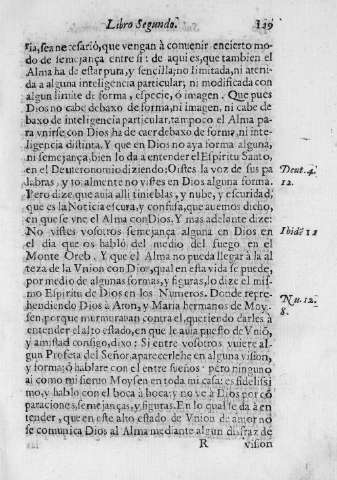 Libro Segundo. 129
ria, sea necesarió, que vengan à convenir en cierto mo-
do de semejança entre si: de aqui es, que tambien el
Alma ha de estar pura, y sencilla, no limitada, ni ateni-
da a alguna inteligencia particular, ni modificada con
algun limite de forma, especie, ò imagen. Que pues
Dios no cabe debaxo de forma, ni imagen, ni cabe de
baxo de inteligencia particular, tampoco el Alma pa-
ra vnirse con Dios ha de caer debaxo de forma, ni inte-
ligencia distinta. Y que en Dios no aya forma alguna,
ni semejança, bien lo da a entender el Espiritu Santo,
en el Deuteronomio diziendo: Oistes la voz de sus pa
labras, y totalmente no vistes en Dios alguna forma.
Deut. 4.
12.
Pero dize que auia alli tinieblas, y nube, y escuridad,
que es la Noticia escura, y confusa, que auemos dicho,
en que se vne el Alma con Dios. Y mas adelante dize:
No vistes vosotros semejança alguna en Dios en
Ibidē 12
el dia que os habló del medio del fuego en el
Monte Oreb. Y que el Alma no pueda llegar à la al
teza de la Vnion con Dios, qual en esta vida se puede,
por medio de algunas formas, y figuras, lo dize el mis-
mo Espiritu de Dios en los Numeros. Donde repre-
hendiendo Dios à Aron, y Maria hermanos de Moy-
Nu. 12.
8.
sen, porque murmurauan contra el, queriendo darles à
entender el alto estado, en que le auia puesto de Vniō,
y amistad consigo, dixo: Si entre vosotros vuiere al-
gun Profeta del Señor, aparecerlehe en alguna vision,
y forma; ó hablare con el entre sueños: pero ninguno
ai como mi sieruo Moysen en toda mi casa: es fidelissi
mo, y hablo con el boca à boca: y no ve à Dios por cō
paraciones, semejanças, y figuras. En lo qual se da à en
tender, que en este alto estado de Vnion de amor no
se comunica Dios al Alma mediante algun disfraz de
R vision